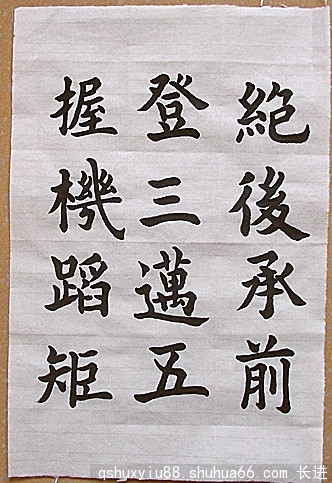 絕後承前
登三邁五
握機蹈矩
gshuxyiu88 shuhua66.com 长进